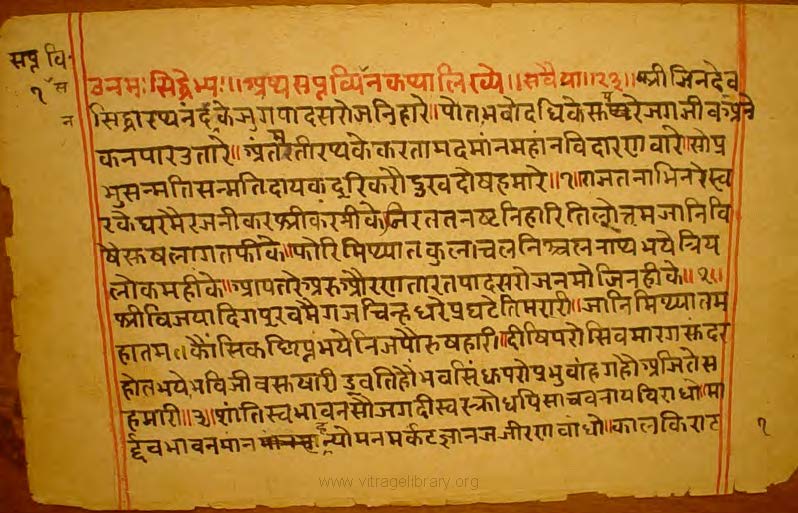 सप्त वि॰
१ स
न
उनमः सिद्धेभ्यः ॥ अथ सप्त व्यिंन कथा लिख्ये ॥ सवैया ॥ २३ ॥ श्री जिनदेव
सिद्धारथनंद के जुग पाद सरोज निहारे ॥ पोत भवोदधि के सम धरे जग जीव
कन पार उतारे ॥ अंत तीरथ के करता मद मांन महांन विदारण वारे ॥ सो प्र
भु सन्मति सन्मति दायक दूरि करौ दुख दोष हमारे ॥ १ ॥ राजत नाभि नरेस्व
र के घर मै रजनीकर श्रीकर नीके निरतत नष्ट निहारि तिलोत्तम जानि वि
षै सुष लागत फीके ॥ फोरि मिथ्यात कुलाचल निश्चल नाथ भये त्रिय
लोक मही के ॥ आप तरे अरु औरण तारत पाद सरोज नमो जिनही के ॥ २ ॥
श्री विजयादि गपूरव मै गज चिन्ह धरे प्रघटे तिमरारी ॥ जानि मिथ्यातम
हातम कौंसिक भये निज पौरुष हारी ॥ दीषि परो सिव मारग सुंदर
होत भये भवि जीव सुषारी डुवति हौं भव सिंधु परो प्रभु वांह गहौ अजितेस
हमारी ॥ ३ ॥ शांति स्वभावन सौ जगदीस्वर क्रोध पिसाच वनाय विराधो ॥ मा
र्द्दव भावन मांन यो मन मर्कट ज्ञान जजीरण वांधो ॥ काल किराट
१
www.vitragelibrary.org